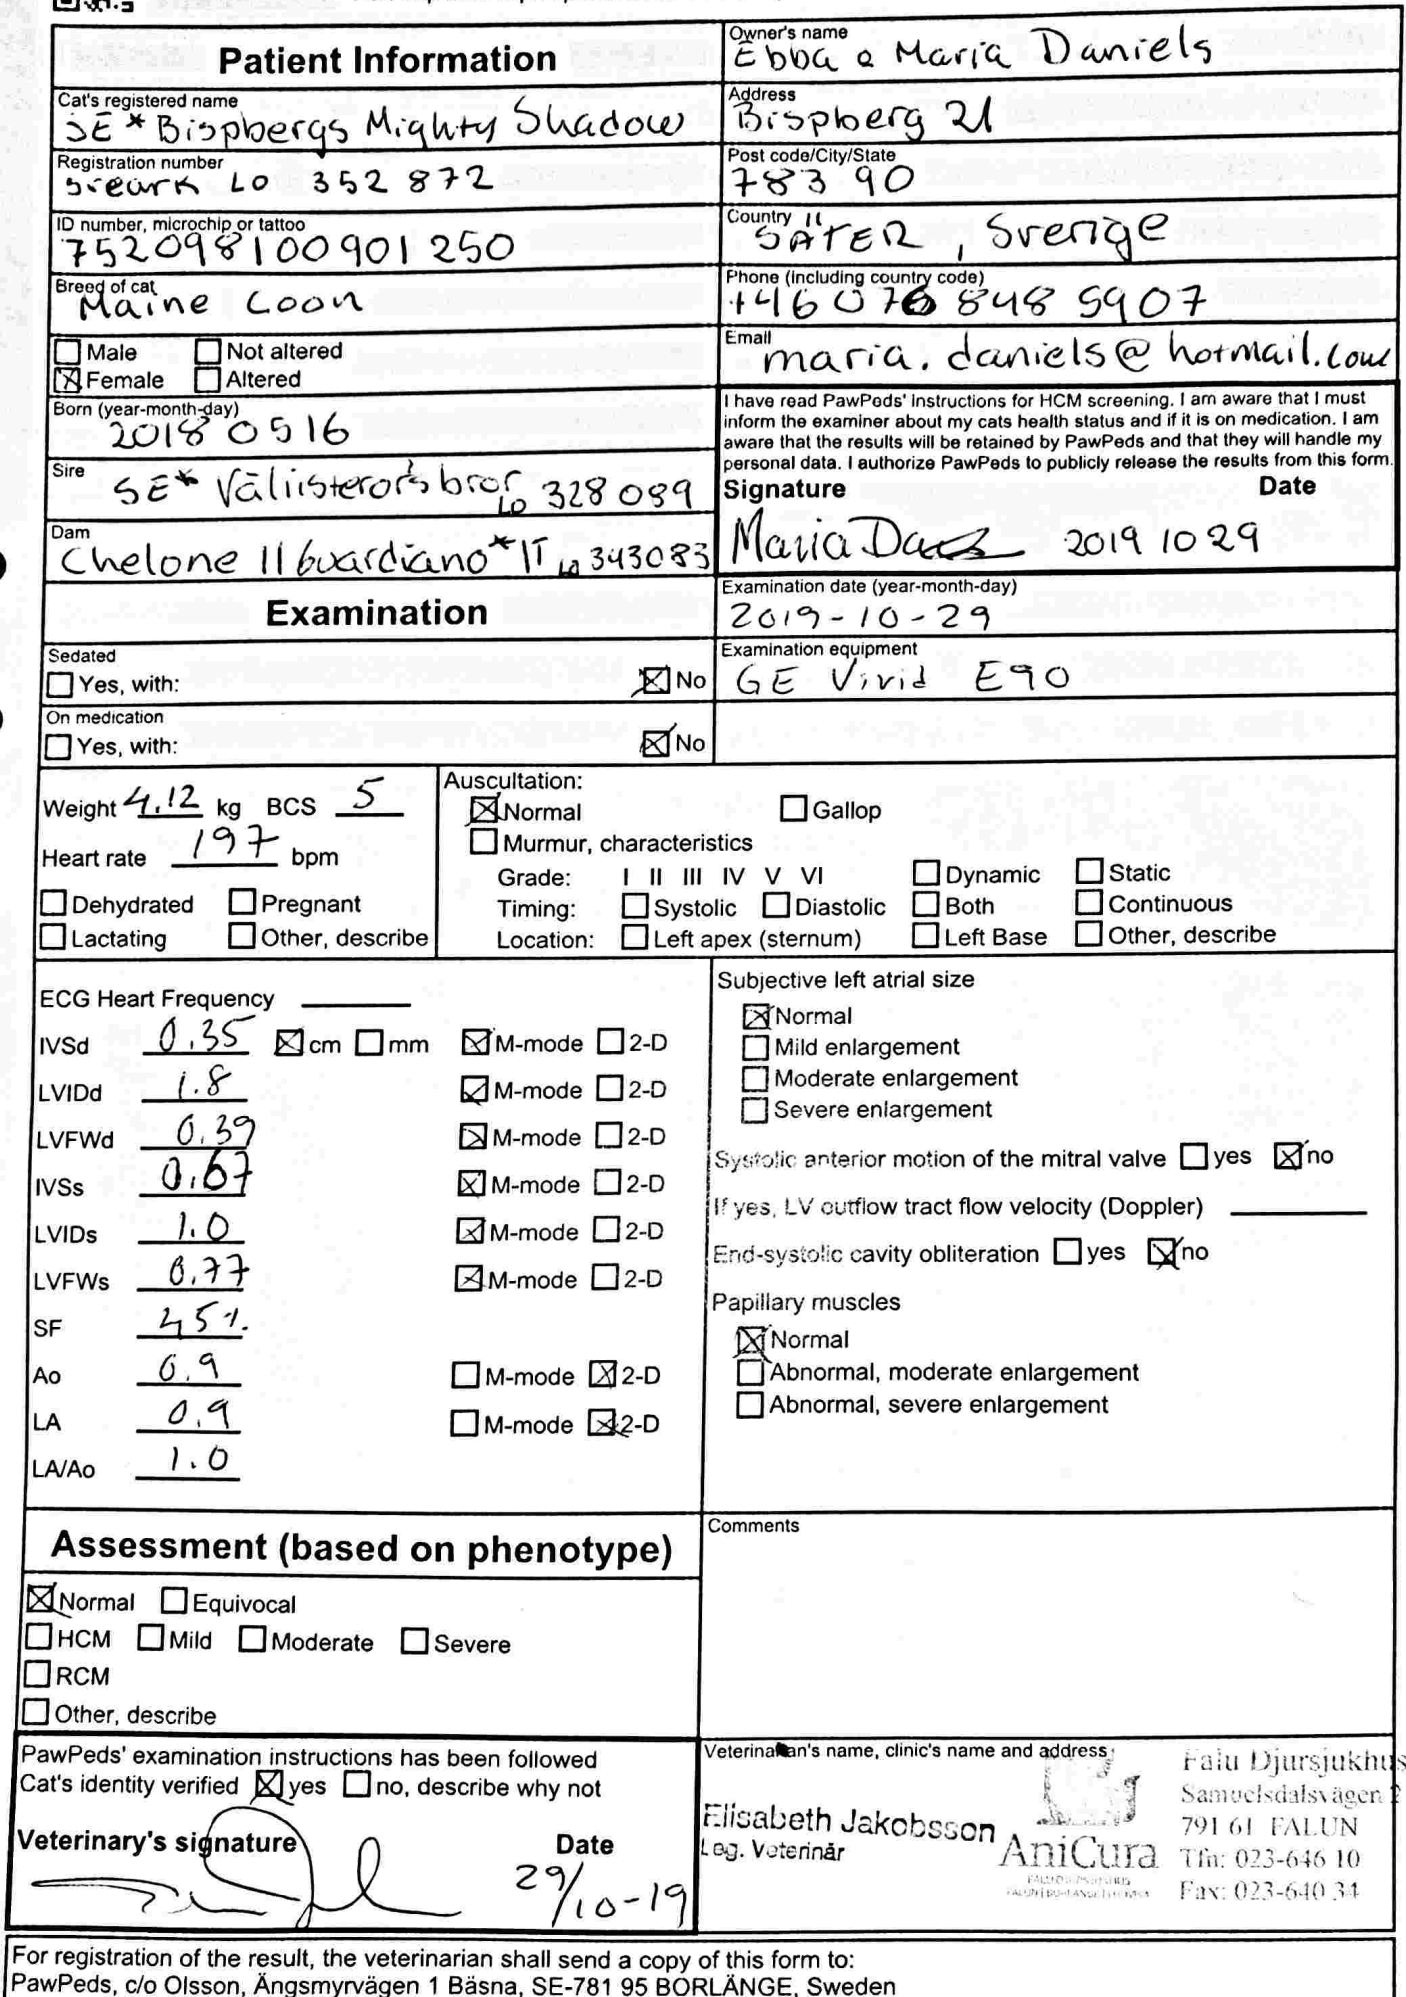 Patient Information
Owner's name
Ebba o Maria Daniels
Cat's registered name
SE* Bispbergs Mighty Shadow
Address
Bispberg 21
Registration number
sveark LO 352 872
Post code/City/State
783 90
ID number, microchip or tattoo
752098100901250
Country
SÄTER, Sverige
Breed of cat
Maine Coon
Phone (including country code)
+46 076 848 5907
☐ Male ☐ Not altered
☒ Female ☐ Altered
Email
maria.daniels@hotmail.com
Born (year-month-day)
2018 05 16
I have read PawPeds' instructions for HCM screening. I am aware that I must
inform the examiner about my cats health status and if it is on medication. I am
aware that the results will be retained by PawPeds and that they will handle my
personal data. I authorize PawPeds to publicly release the results from this form.
Sire
SE* LO 328 089
Signature Date
Maria 2019 10 29
Dam
Chelone Il Guardiano*IT LO 343083
Examination
Examination date (year-month-day)
2019-10-29
Sedated
☐ Yes, with: ☒ No
Examination equipment
GE Vivid E90
On medication
☐ Yes, with: ☒ No
Weight 4.12 kg BCS 5
Heart rate 197 bpm
☐ Dehydrated ☐ Pregnant
☐ Lactating ☐ Other, describe
Auscultation:
☒ Normal ☐ Gallop
☐ Murmur, characteristics
Grade: I II III IV V VI ☐ Dynamic ☐ Static
Timing: ☐ Systolic ☐ Diastolic ☐ Both ☐ Continuous
Location: ☐ Left apex (sternum) ☐ Left Base ☐ Other, describe
ECG Heart Frequency
IVSd 0.35 ☒ cm ☐ mm ☒ M-mode ☐ 2-D
LVIDd 1.8 ☒ M-mode ☐ 2-D
LVFWd 0.39 ☒ M-mode ☐ 2-D
IVSs 0.67 ☒ M-mode ☐ 2-D
LVIDs 1.0 ☒ M-mode ☐ 2-D
LVFWs 0.77 ☒ M-mode ☐ 2-D
SF 45%
Ao 0.9 ☐ M-mode ☒ 2-D
LA 0.9 ☐ M-mode ☒ 2-D
LA/Ao 1.0
Subjective left atrial size
☒ Normal
☐ Mild enlargement
☐ Moderate enlargement
☐ Severe enlargement
Systolic anterior motion of the mitral valve ☐ yes ☒ no
If yes, LV outflow tract flow velocity (Doppler)
End-systolic cavity obliteration ☐ yes ☒ no
Papillary muscles
☒ Normal
☐ Abnormal, moderate enlargement
☐ Abnormal, severe enlargement
Assessment (based on phenotype)
☒ Normal ☐ Equivocal
☐ HCM ☐ Mild ☐ Moderate ☐ Severe
☐ RCM
☐ Other, describe
Comments
PawPeds' examination instructions has been followed
Cat's identity verified ☒ yes ☐ no, describe why not
Veterinary's signature Date
29/10-19
Veterinarian's name, clinic's name and address
Elisabeth Jakobsson
Leg. Veterinär
AniCura
Falu Djursjukhus
Samuelsdalsvägen 2
791 61 FALUN
Tfn: 023-646 10
Fax: 023-640 34
For registration of the result, the veterinarian shall send a copy of this form to:
PawPeds, c/o Olsson, Ängsmyrvägen 1 Bäsna, SE-781 95 BORLÄNGE, Sweden